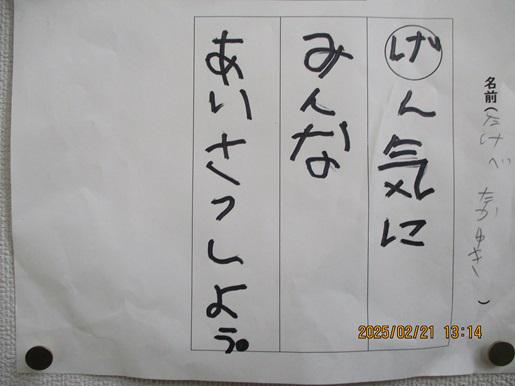 名前(たけべ たかゆき)
げん気に
みんな
あいさつしよう。
2025/02/21 13:14